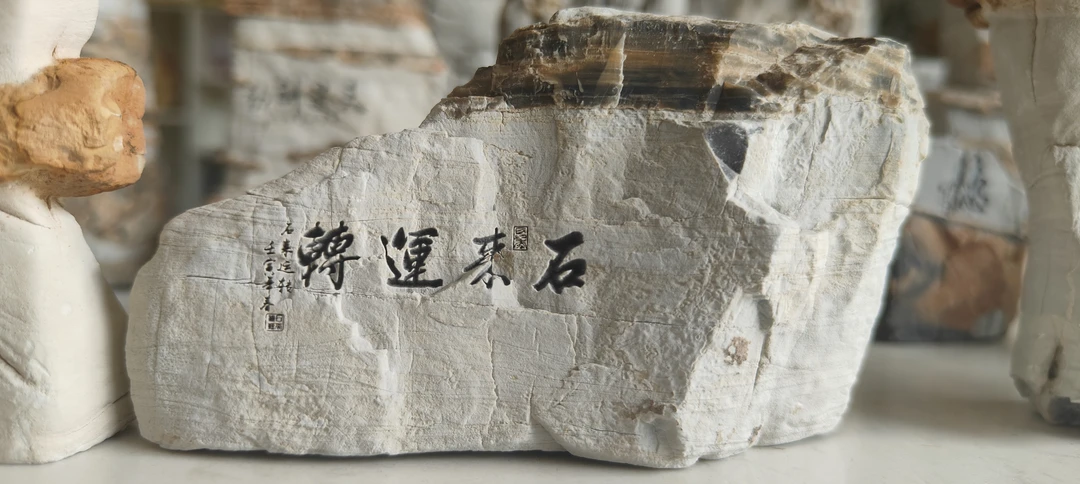 石来運轉
石来运转
壬寅年春